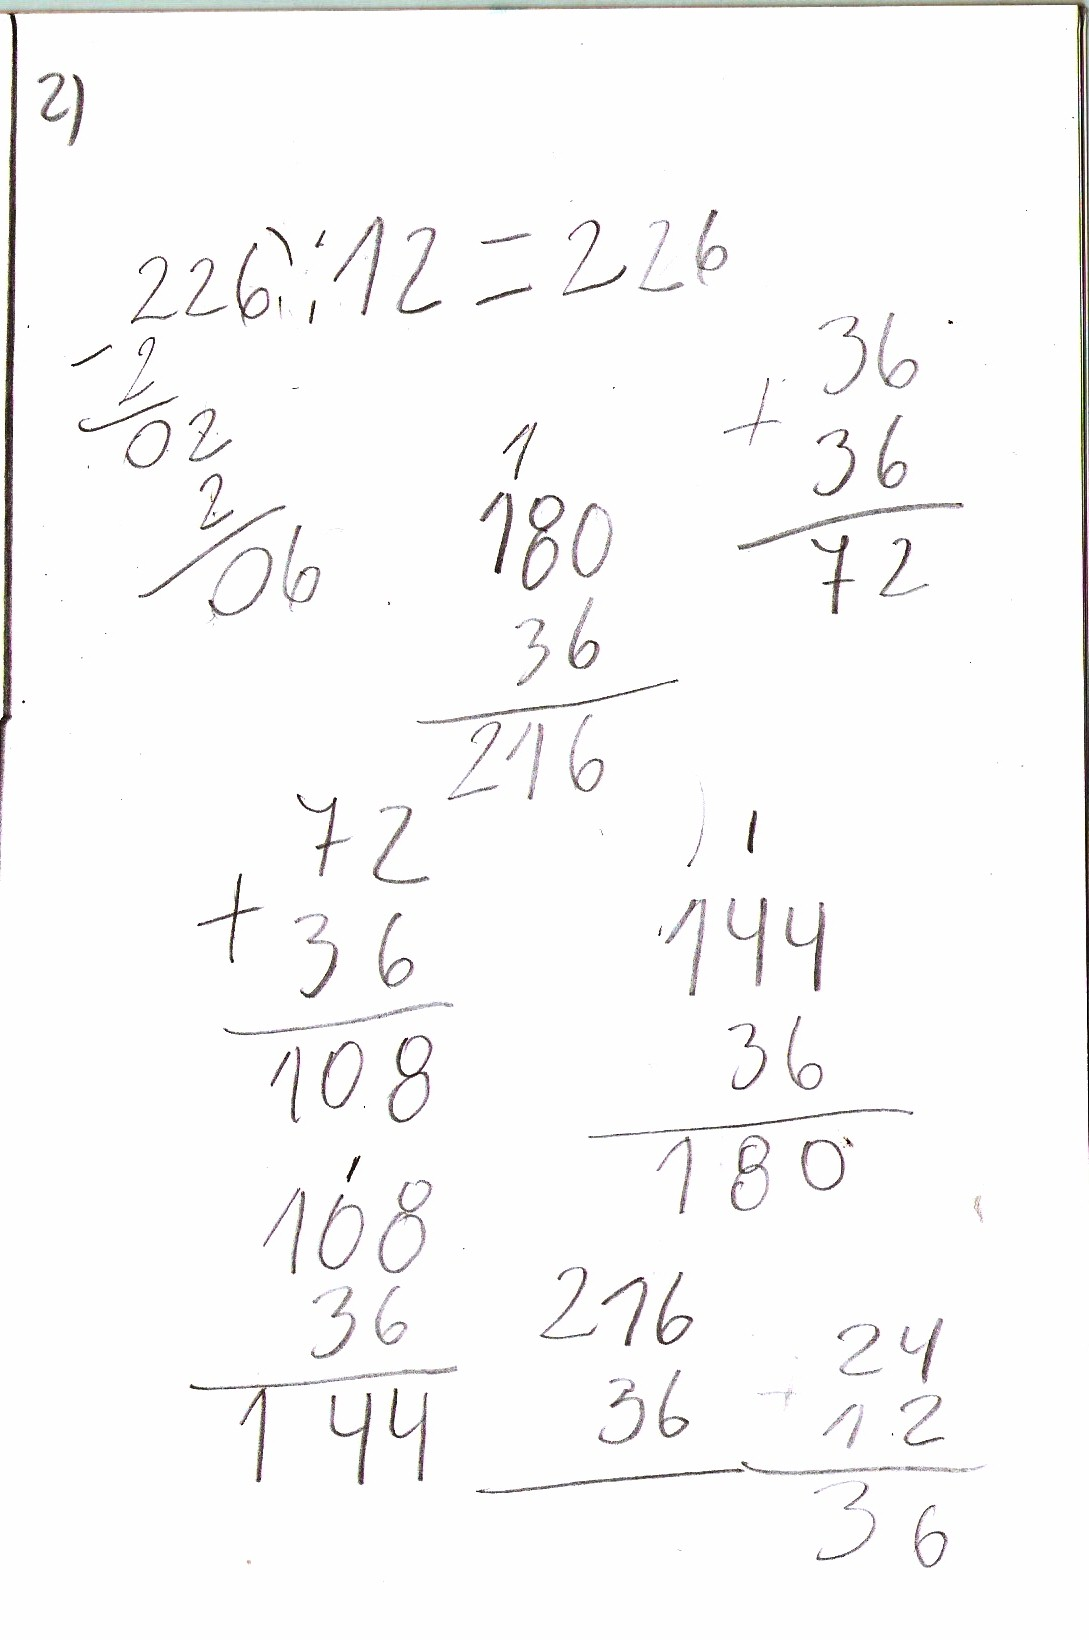 2)
226 : 12 = 226
- 2
02
2
06
36
+ 36
72
1
180
36
216
72
+ 36
108
1
144
36
180
1
108
36
144
216
36
24
+ 12
36